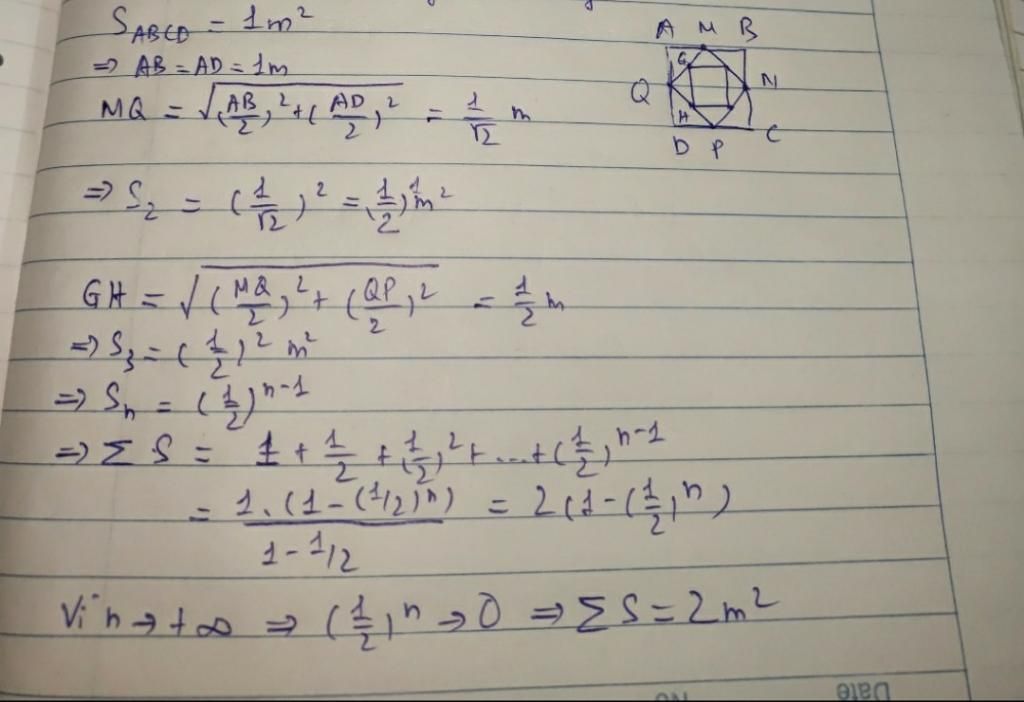 S_ABCD = 1m²
⇒ AB = AD = 1m
MQ = √((AB/2)² + (AD/2)²) = 1/√2 m
⇒ S₂ = (1/√2)² = (1/2)¹ m²
GH = √((MQ/2)² + (QP/2)²) = 1/2 m
⇒ S₃ = (1/2)² m²
⇒ Sₙ = (1/2)ⁿ⁻¹
⇒ Σ S = 1 + 1/2 + (1/2)² + ... + (1/2)ⁿ⁻¹
= 1.(1-(1/2)ⁿ) / 1-1/2 = 2(1-(1/2)ⁿ)
Vì n → +∞ ⇒ (1/2)ⁿ → 0 ⇒ Σ S = 2m²
A M B
G
Q N
H
D P C
No Date